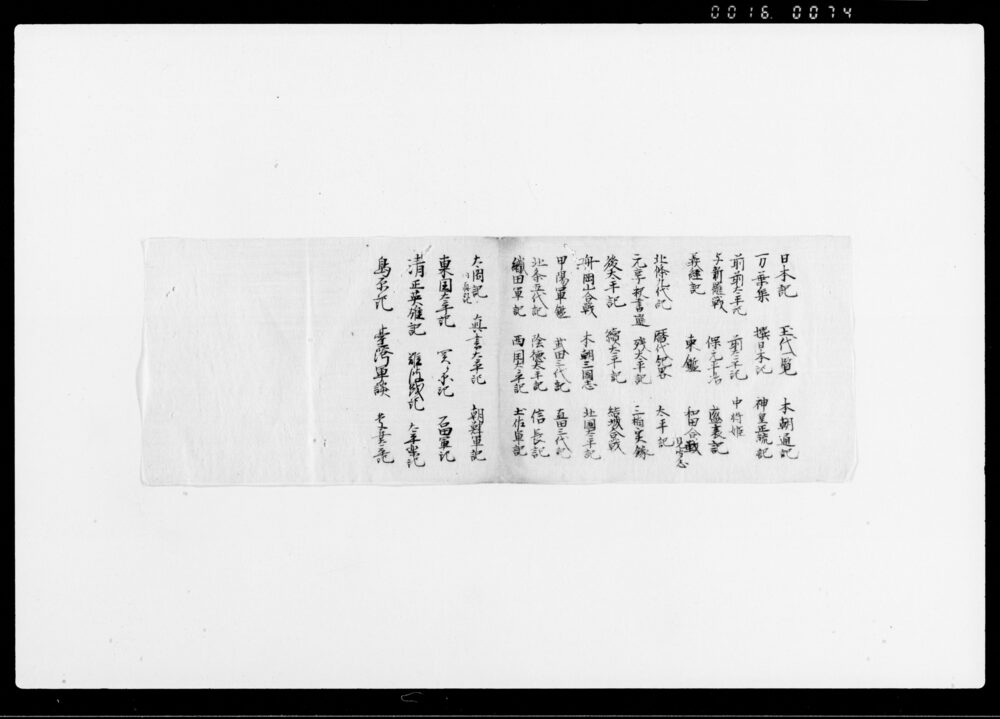 0016 0074
日本記 王代一覧 本朝通記
万葉集 撰日本記 神皇正統記
前前太平記 前太平記 中将姫
与新羅戦 保元平治 盛衰記
義経記 東鑑 和田合戦
北條九代記 暦代 太平記
元亨釈書 残太平記 三楠実録
後太平記 續太平記 結城合戦
舟岡山合戦 本朝三国志 北国太平記
甲陽軍鑑 武田三代記 真田三代記
北条五代記 陰徳太平記 信長記
織田軍記 西国太平記 土佐軍記
太閤記 真書太平記 朝鮮軍記
東国太平記 関ヶ原記 石田軍記
清正英雄記 難波戦記 太平
島原記 台湾軍談